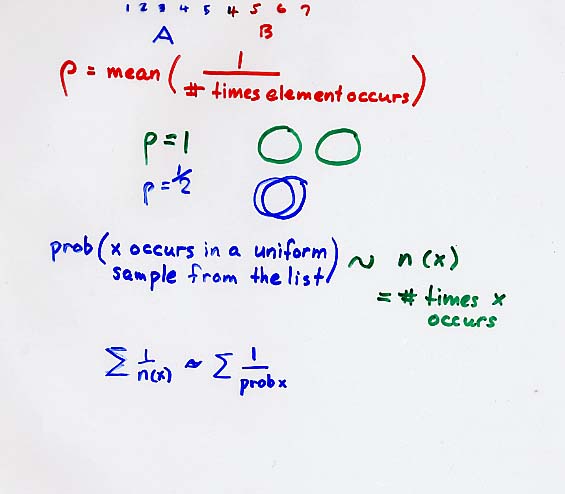 1 2 3 4 5 4 5 6 7
A B
ρ = mean ( 1 / # times element occurs )
ρ = 1
ρ = 1/2
prob ( x occurs in a uniform sample from the list ) ~ n(x)
= # times x
occurs
Σ 1/n(x) ~ Σ 1/prob x